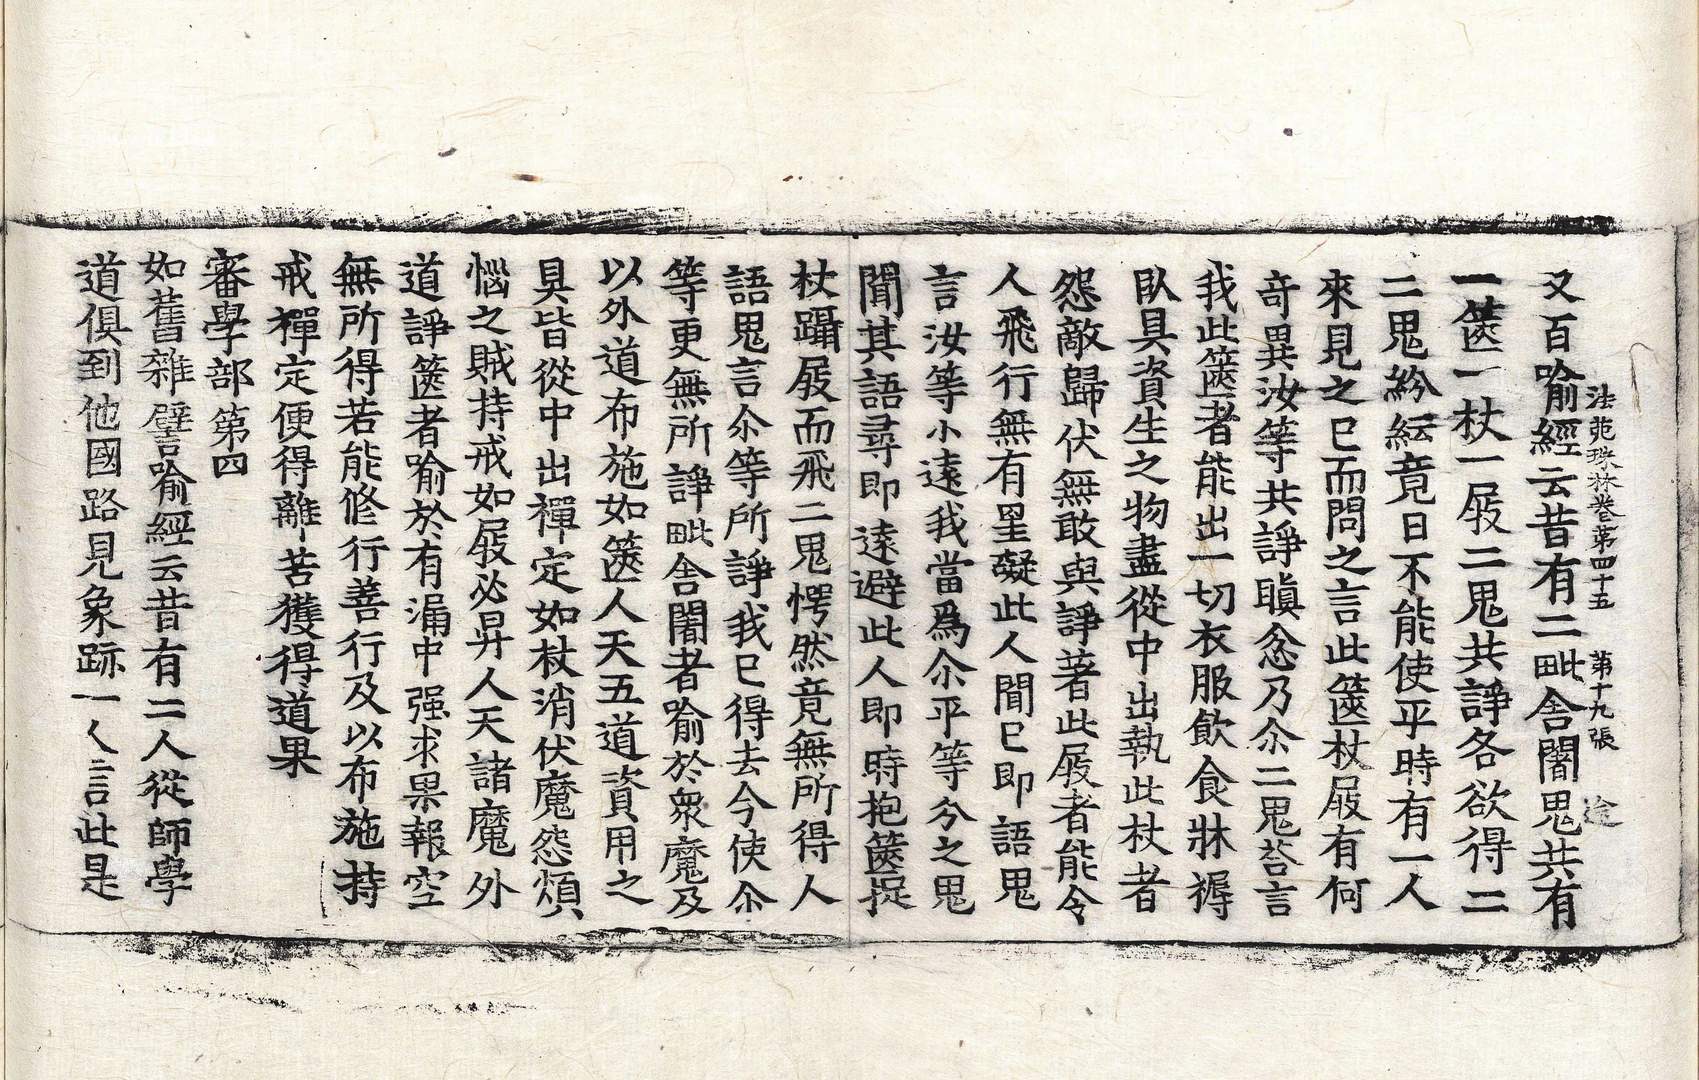 法苑珠林卷第四十五 第十九張 途
又百喻經云昔有二毗舍闍鬼共有
一篋一杖一屐二鬼共諍各欲得二
二鬼紛紜竟日不能使平時有一人
來見之已而問之言此篋杖屐有何
奇異汝等共諍瞋忿乃尒二鬼荅言
我此篋者能出一切衣服飲食牀褥
臥具資生之物盡從中出執此杖者
怨敵歸伏無敢與諍著此屐者能令
人飛行無有罣礙此人聞已即語鬼
言汝等小遠我當為尒平等分之鬼
聞其語尋即遠避此人即時抱篋捉
杖躡屐而飛二鬼愕然竟無所得人
語鬼言尒等所諍我已得去今使尒
等更無所諍毗舍闍者喻於衆魔及
以外道布施如篋人天五道資用之
具皆從中出禪定如杖消伏魔怨煩
惱之賊持戒如屐必昇人天諸魔外
道諍篋者喻於有漏中强求果報空
無所得若能修行善行及以布施持
戒禪定便得離苦獲得道果
審學部第四
如舊雜譬喻經云昔有二人從師學
道俱到他國路見象跡一人言此是